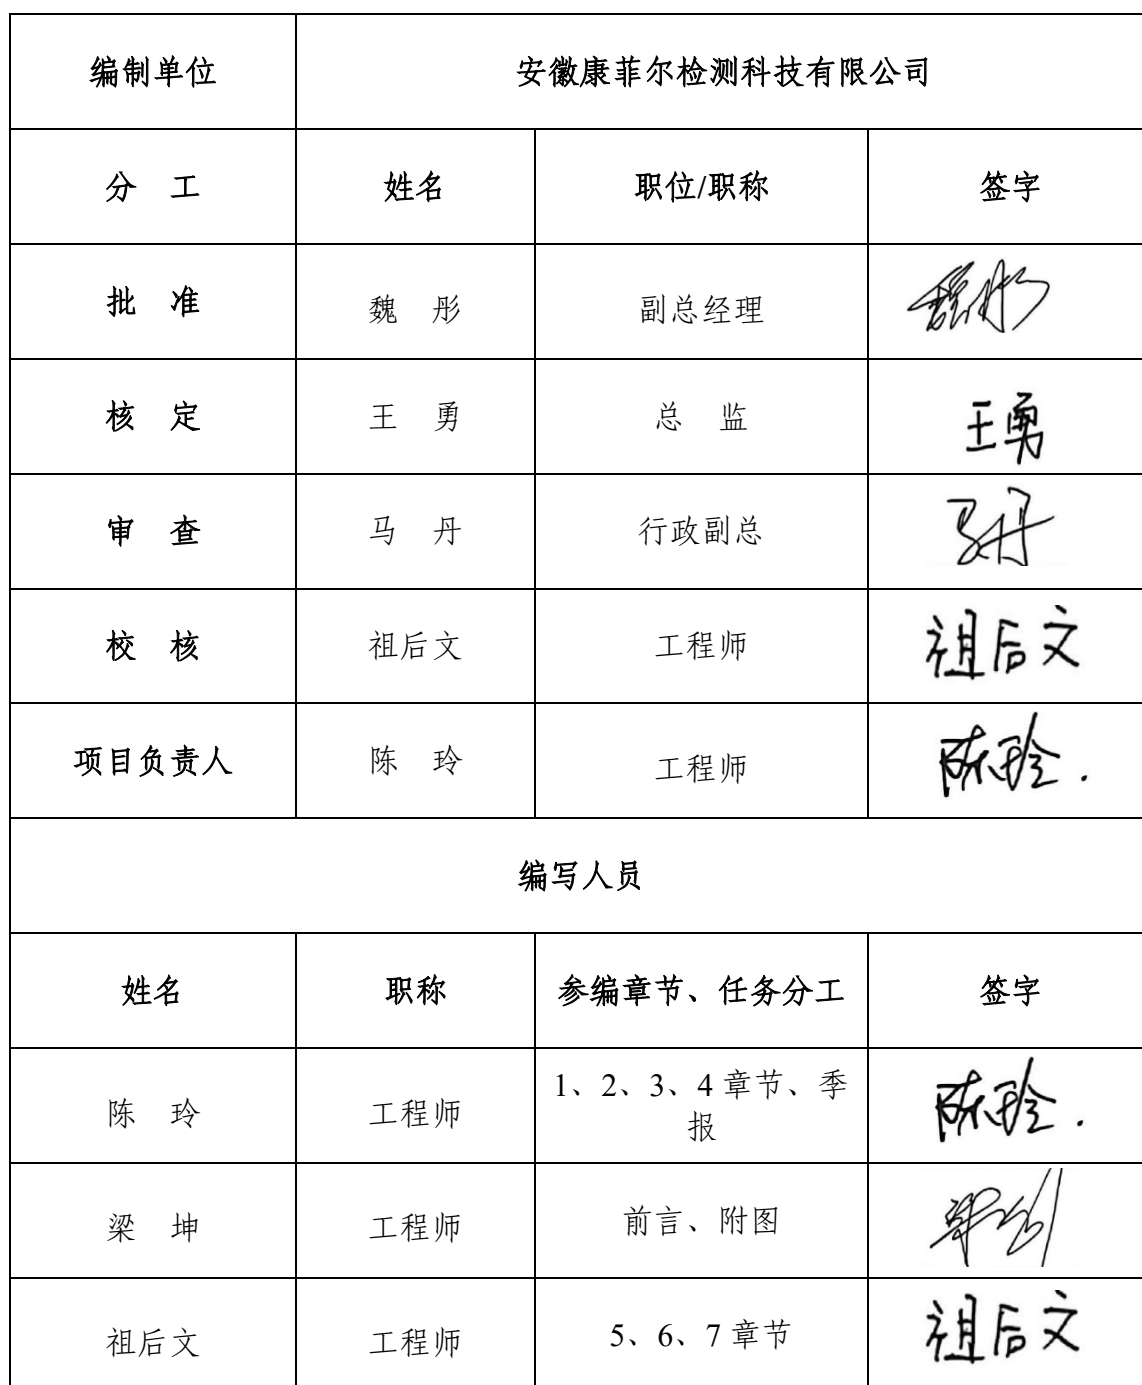 编制单位 安徽康菲尔检测科技有限公司
分 工 姓名 职位/职称 签字
批 准 魏 彤 副总经理 魏彤
核 定 王 勇 总 监 王勇
审 查 马 丹 行政副总 马丹
校 核 祖后文 工程师 祖后文
项目负责人 陈 玲 工程师 陈玲.
编写人员
姓名 职称 参编章节、任务分工 签字
陈 玲 工程师 1、2、3、4 章节、季 陈玲.
报
梁 坤 工程师 前言、附图
祖后文 工程师 5、6、7 章节 祖后文